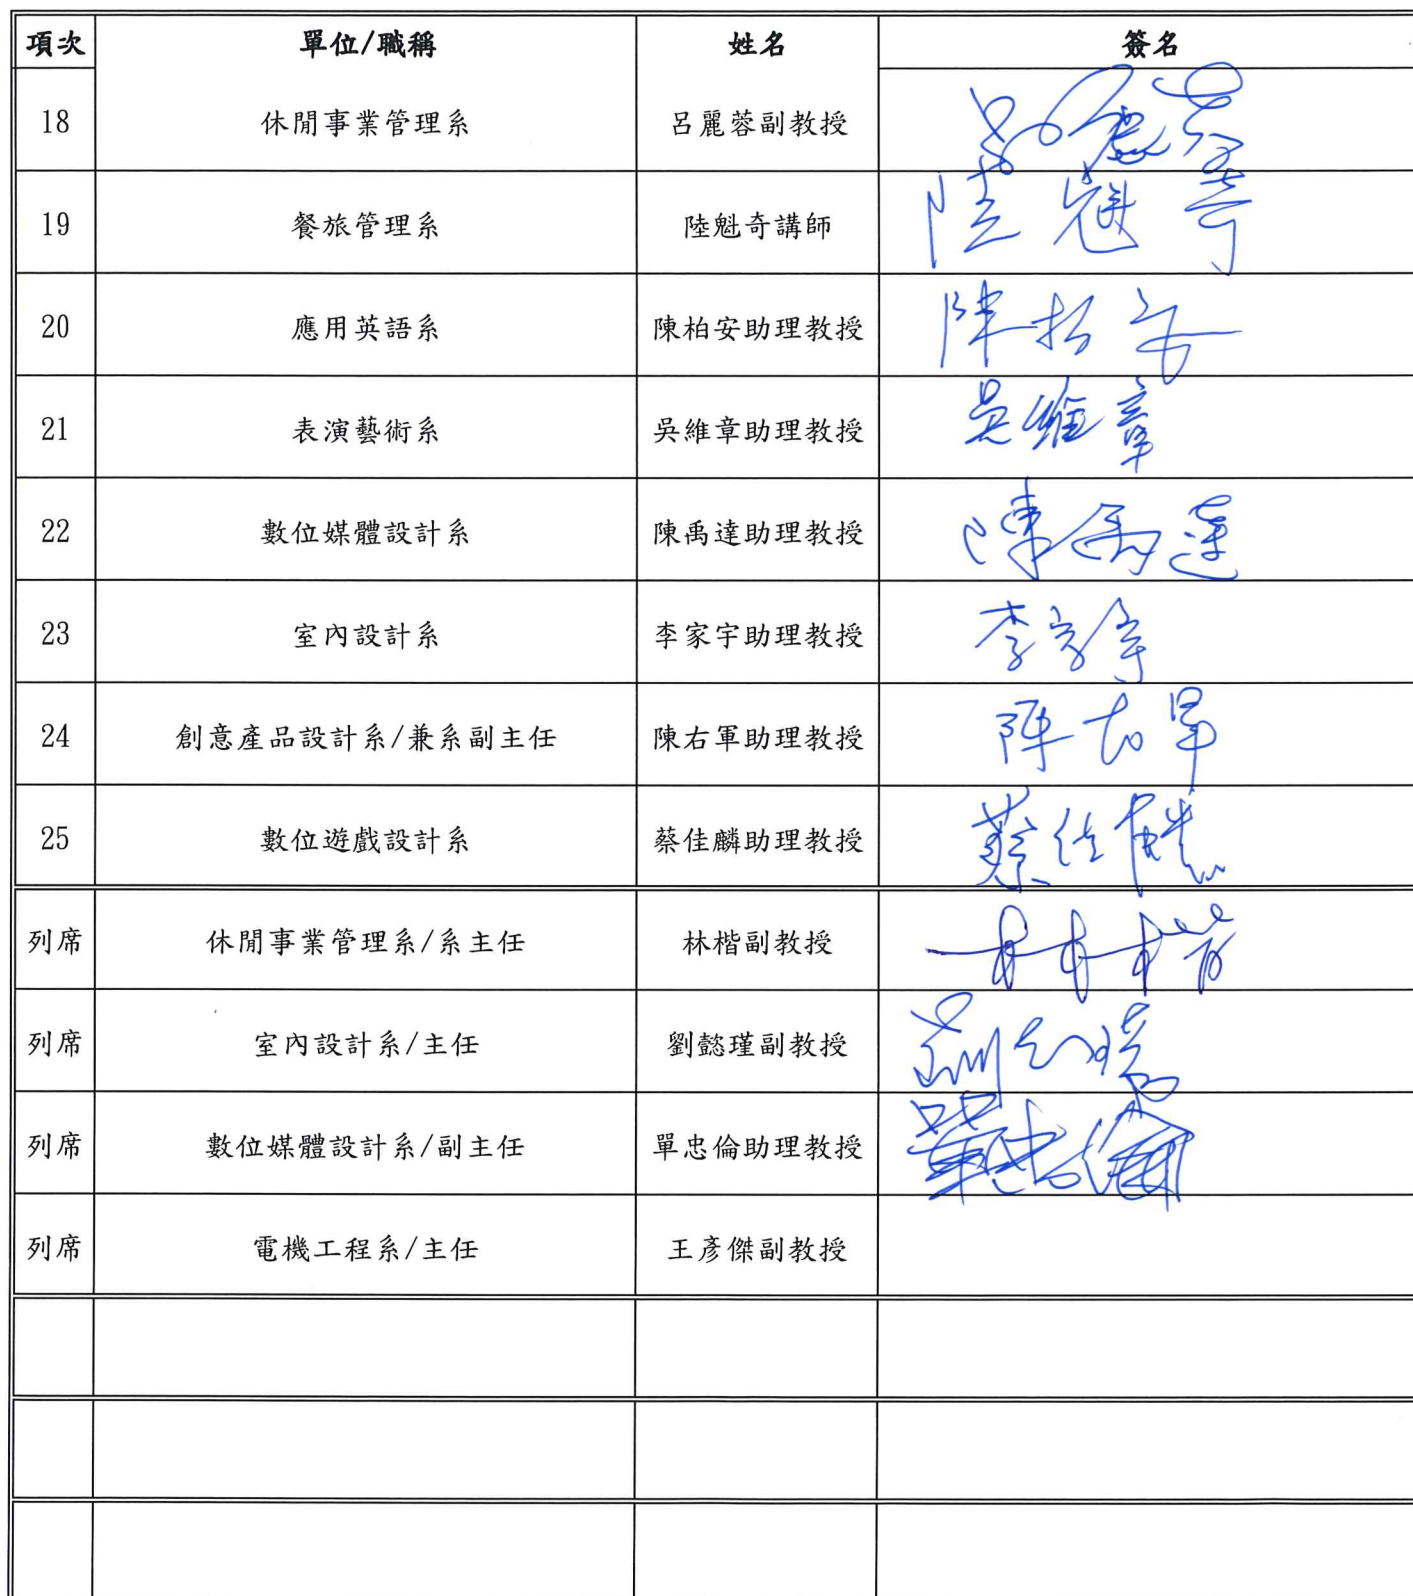 項次 單位/職稱 姓名 簽名
18 休閒事業管理系 呂麗蓉副教授 呂麗蓉
19 餐旅管理系 陸魁奇講師 陸魁奇
20 應用英語系 陳柏安助理教授 陳柏安
21 表演藝術系 吳維章助理教授 吳維章
22 數位媒體設計系 陳禹達助理教授 陳禹達
23 室內設計系 李家宇助理教授 李家宇
24 創意產品設計系/兼系副主任 陳右軍助理教授 陳右軍
25 數位遊戲設計系 蔡佳麟助理教授 蔡佳麟
列席 休閒事業管理系/系主任 林楷副教授 林楷
列席 室內設計系/主任 劉懿瑾副教授 劉懿瑾
列席 數位媒體設計系/副主任 單忠倫助理教授 單忠倫
列席 電機工程系/主任 王彥傑副教授